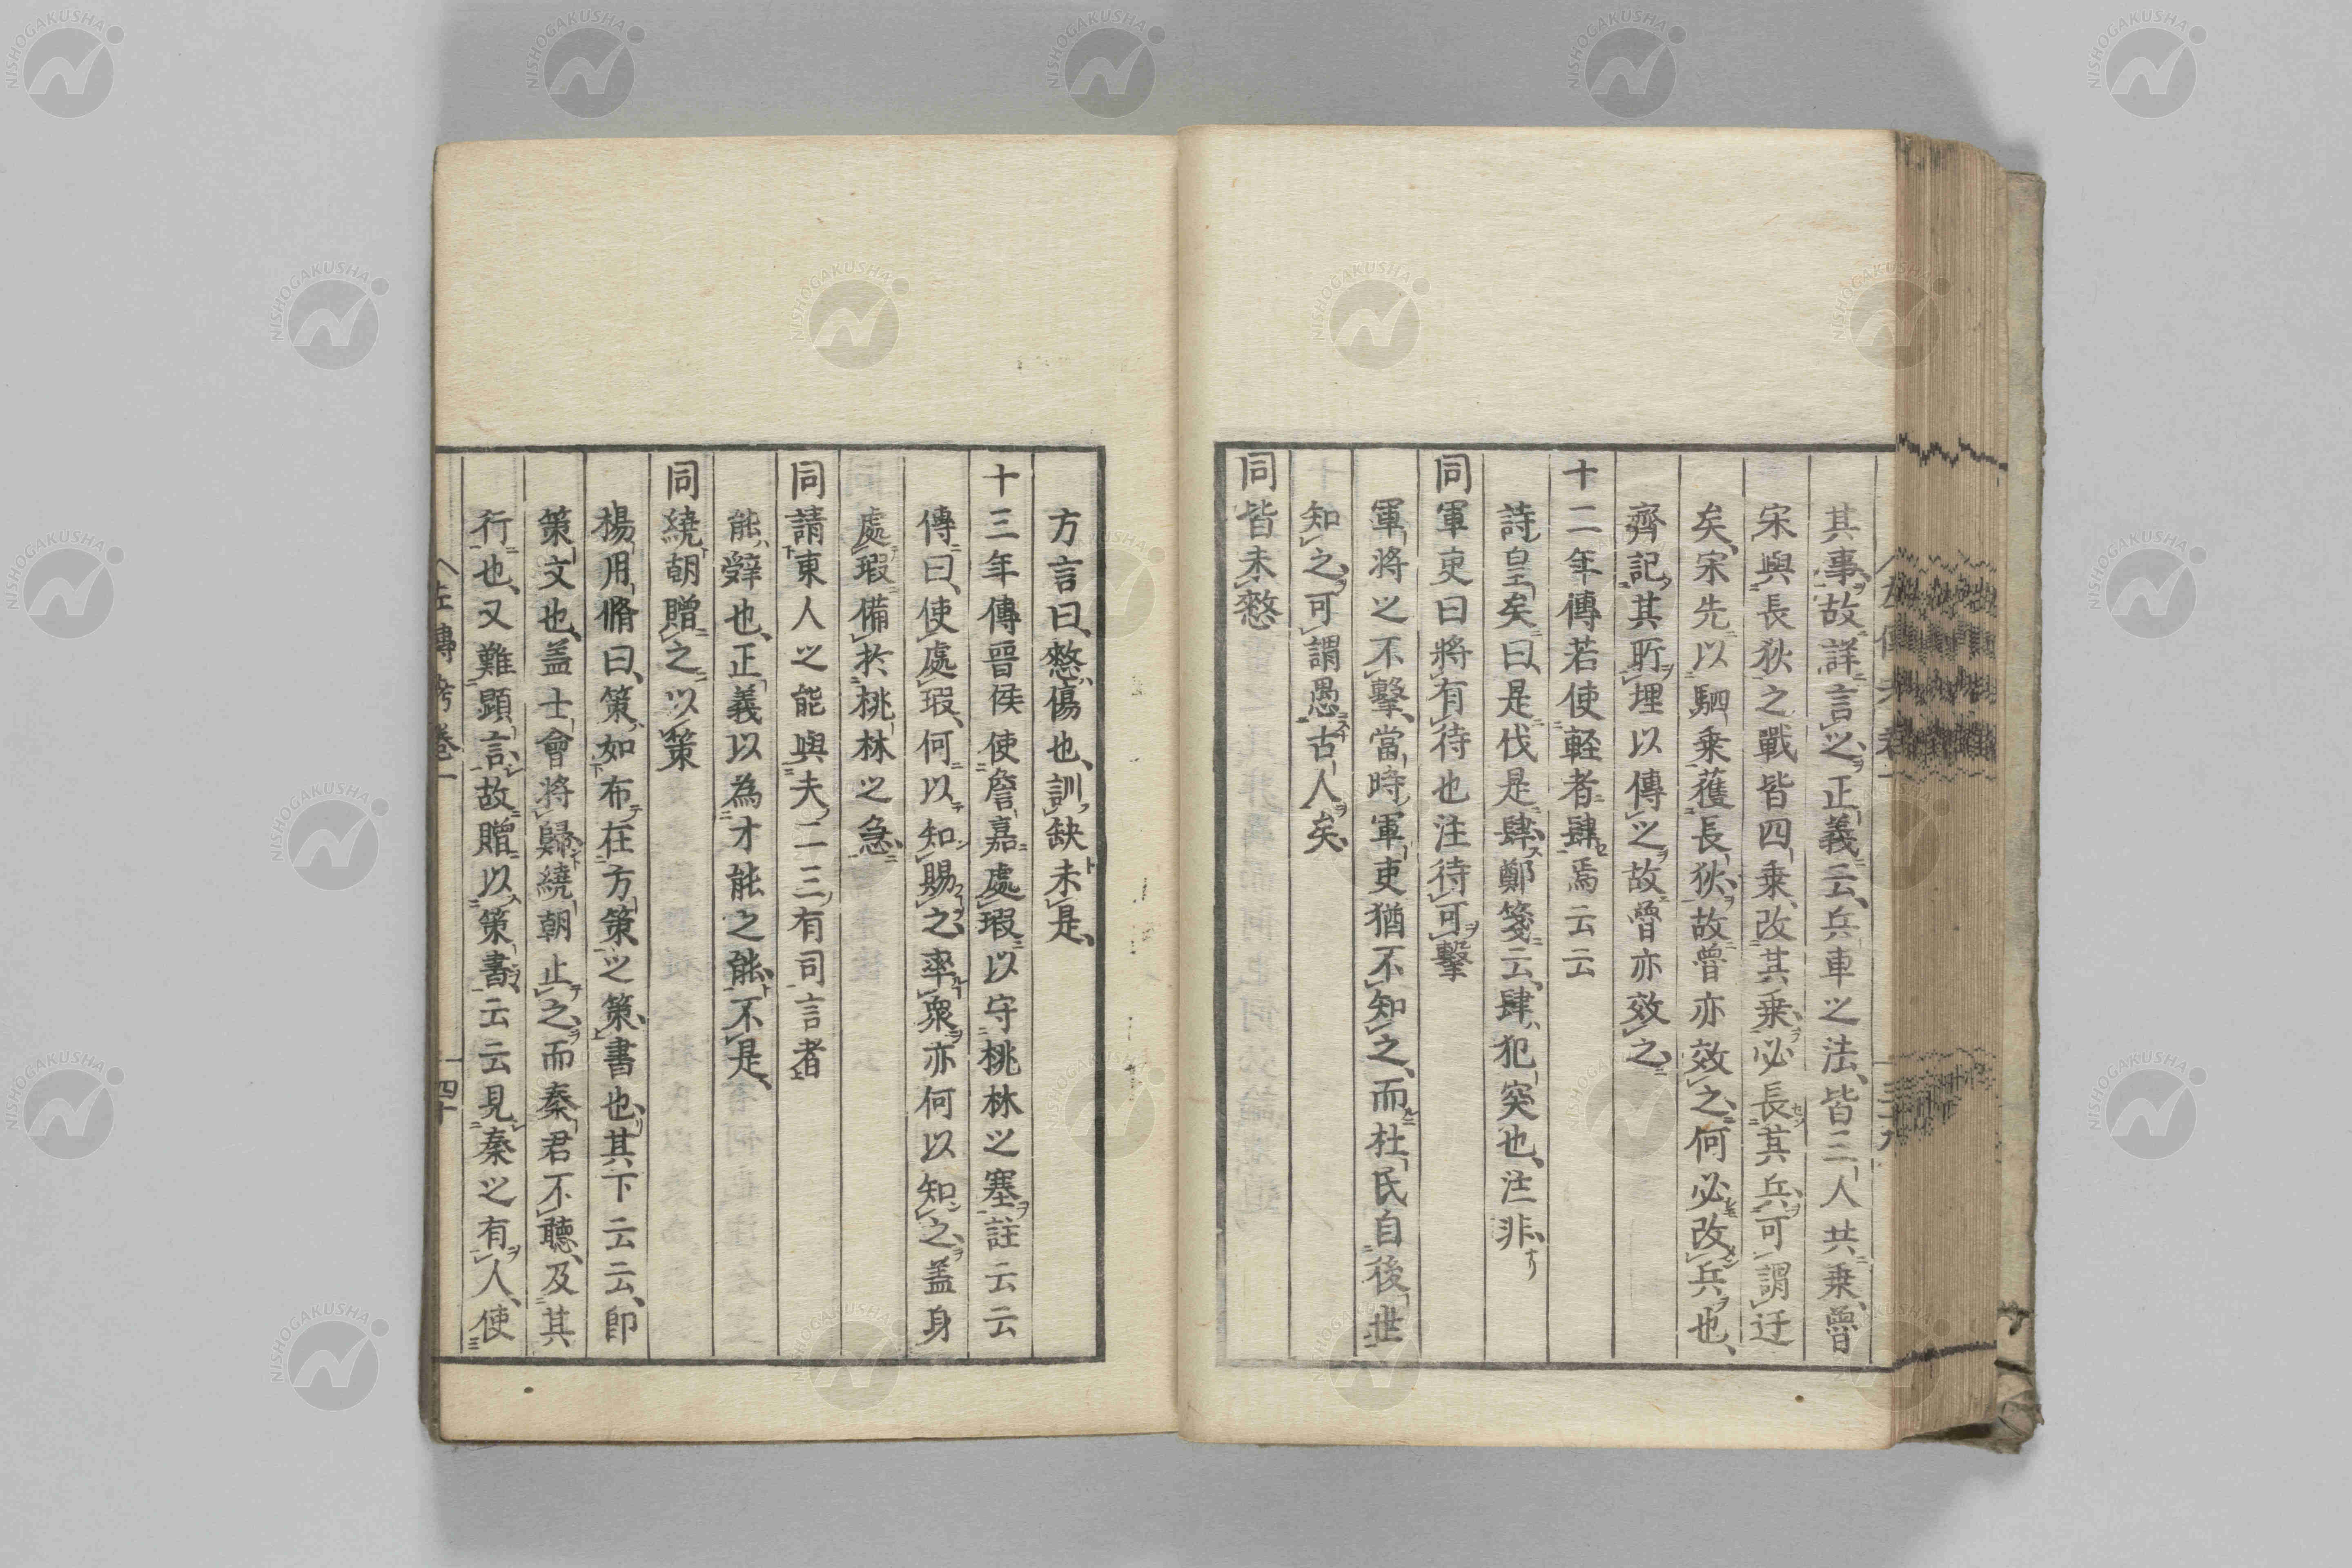 其事故詳言之正義云兵車之法皆三人共乗魯
宋與長狄之戰皆四乗改其乗必長其兵可謂迂
矣宋先以駟乗獲長狄故魯亦效之何必改兵也
齊記其所埋以傳之故魯亦效之
十二年傳若使輕者肆焉云云
詩皇矣曰是伐是肆鄭箋云肆犯突也注非
同軍吏曰將有待也注待可擊
軍將之不擊當時軍吏猶不知之而杜氏自後世
知之可謂愚古人矣
同皆未憖
方言曰憖傷也訓缺未是
十三年傳晉侯使詹嘉處瑕以守桃林之塞註云云
傳曰使處瑕何以知賜之率衆亦何以知之盖身
處瑕備於桃林之急
同請東人之能與夫二三有司言者
能辤也正義以為才能之能不是
同繞朝贈之以策
楊用脩曰策如布在方策之策書也其下云云卽
策文也盖士會將歸繞朝止之而秦君不聽及其
行也又難顕言故贈以策書云云見秦之有人使
左傳考卷一 四十
NISHOGAKUSHA